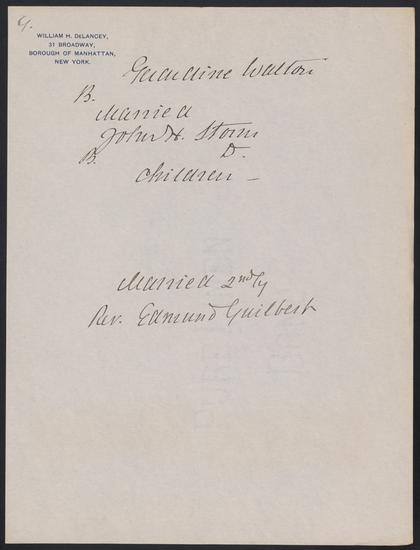 WILLIAM H. DELANCEY,
31 BROADWAY,
BOROUGH OF MANHATTAN,
NEW YORK.
Geraldine Walton
B.
Married
John H. Storm
B. D.
Children —
Married 2ndly
Rev. Edmund Guilbert